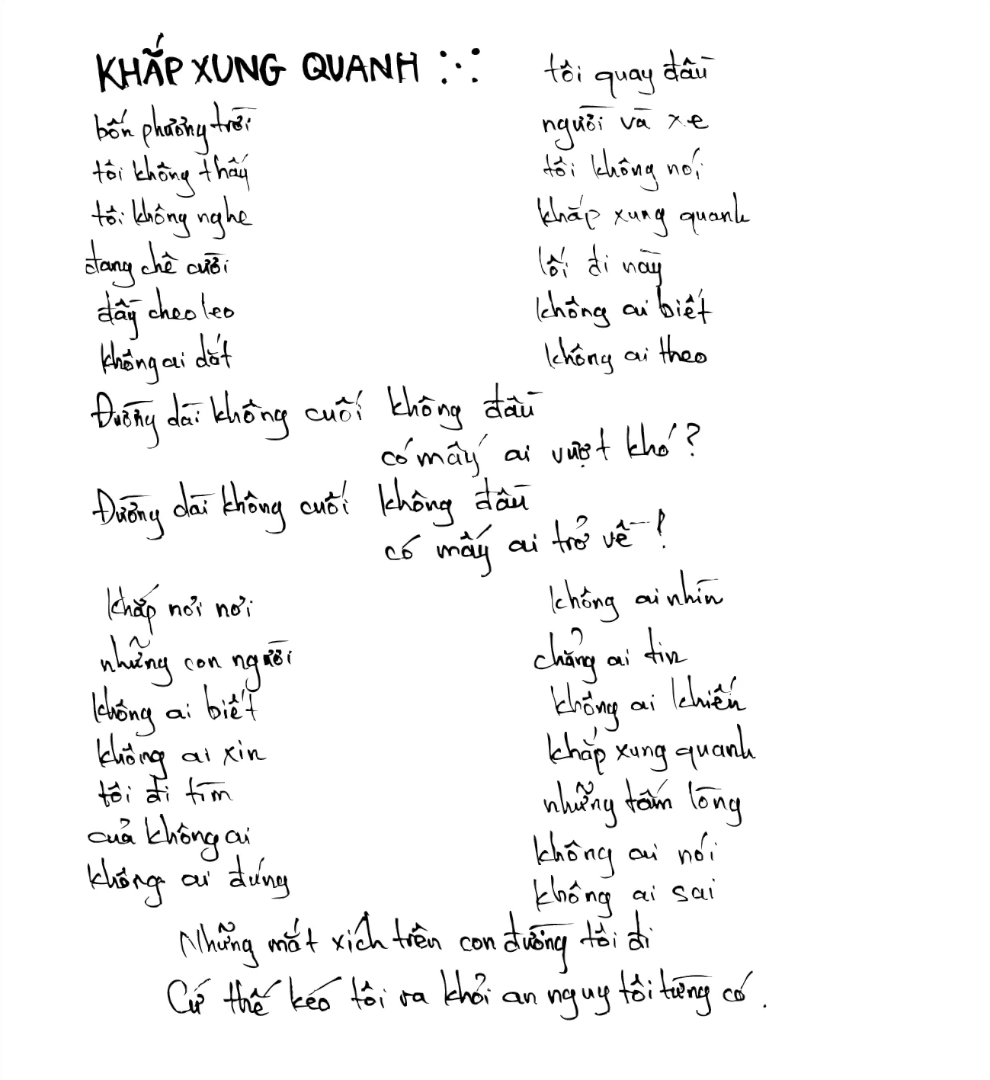 KHẮP XUNG QUANH
bốn phương trời
tôi không thấy
tôi không nghe
đang chê cười
dẫy cheo leo
không ai dắt
tôi quay đầu
người và xe
tôi không nói
khắp xung quanh
lối đi này
không ai biết
không ai theo
Đường dài không cuối không đầu
có mấy ai vượt khó?
Đường dài không cuối không đầu
có mấy ai trở về!
khắp nơi nơi
những con người
không ai biết
không ai xin
tôi đi tìm
của không ai
không ai đúng
không ai nhìn
chẳng ai tin
không ai khiến
khắp xung quanh
những tấm lòng
không ai nói
không ai sai
Những mắt xích trên con đường tôi đi
Cứ thế kéo tôi ra khỏi an nguy tôi từng có.